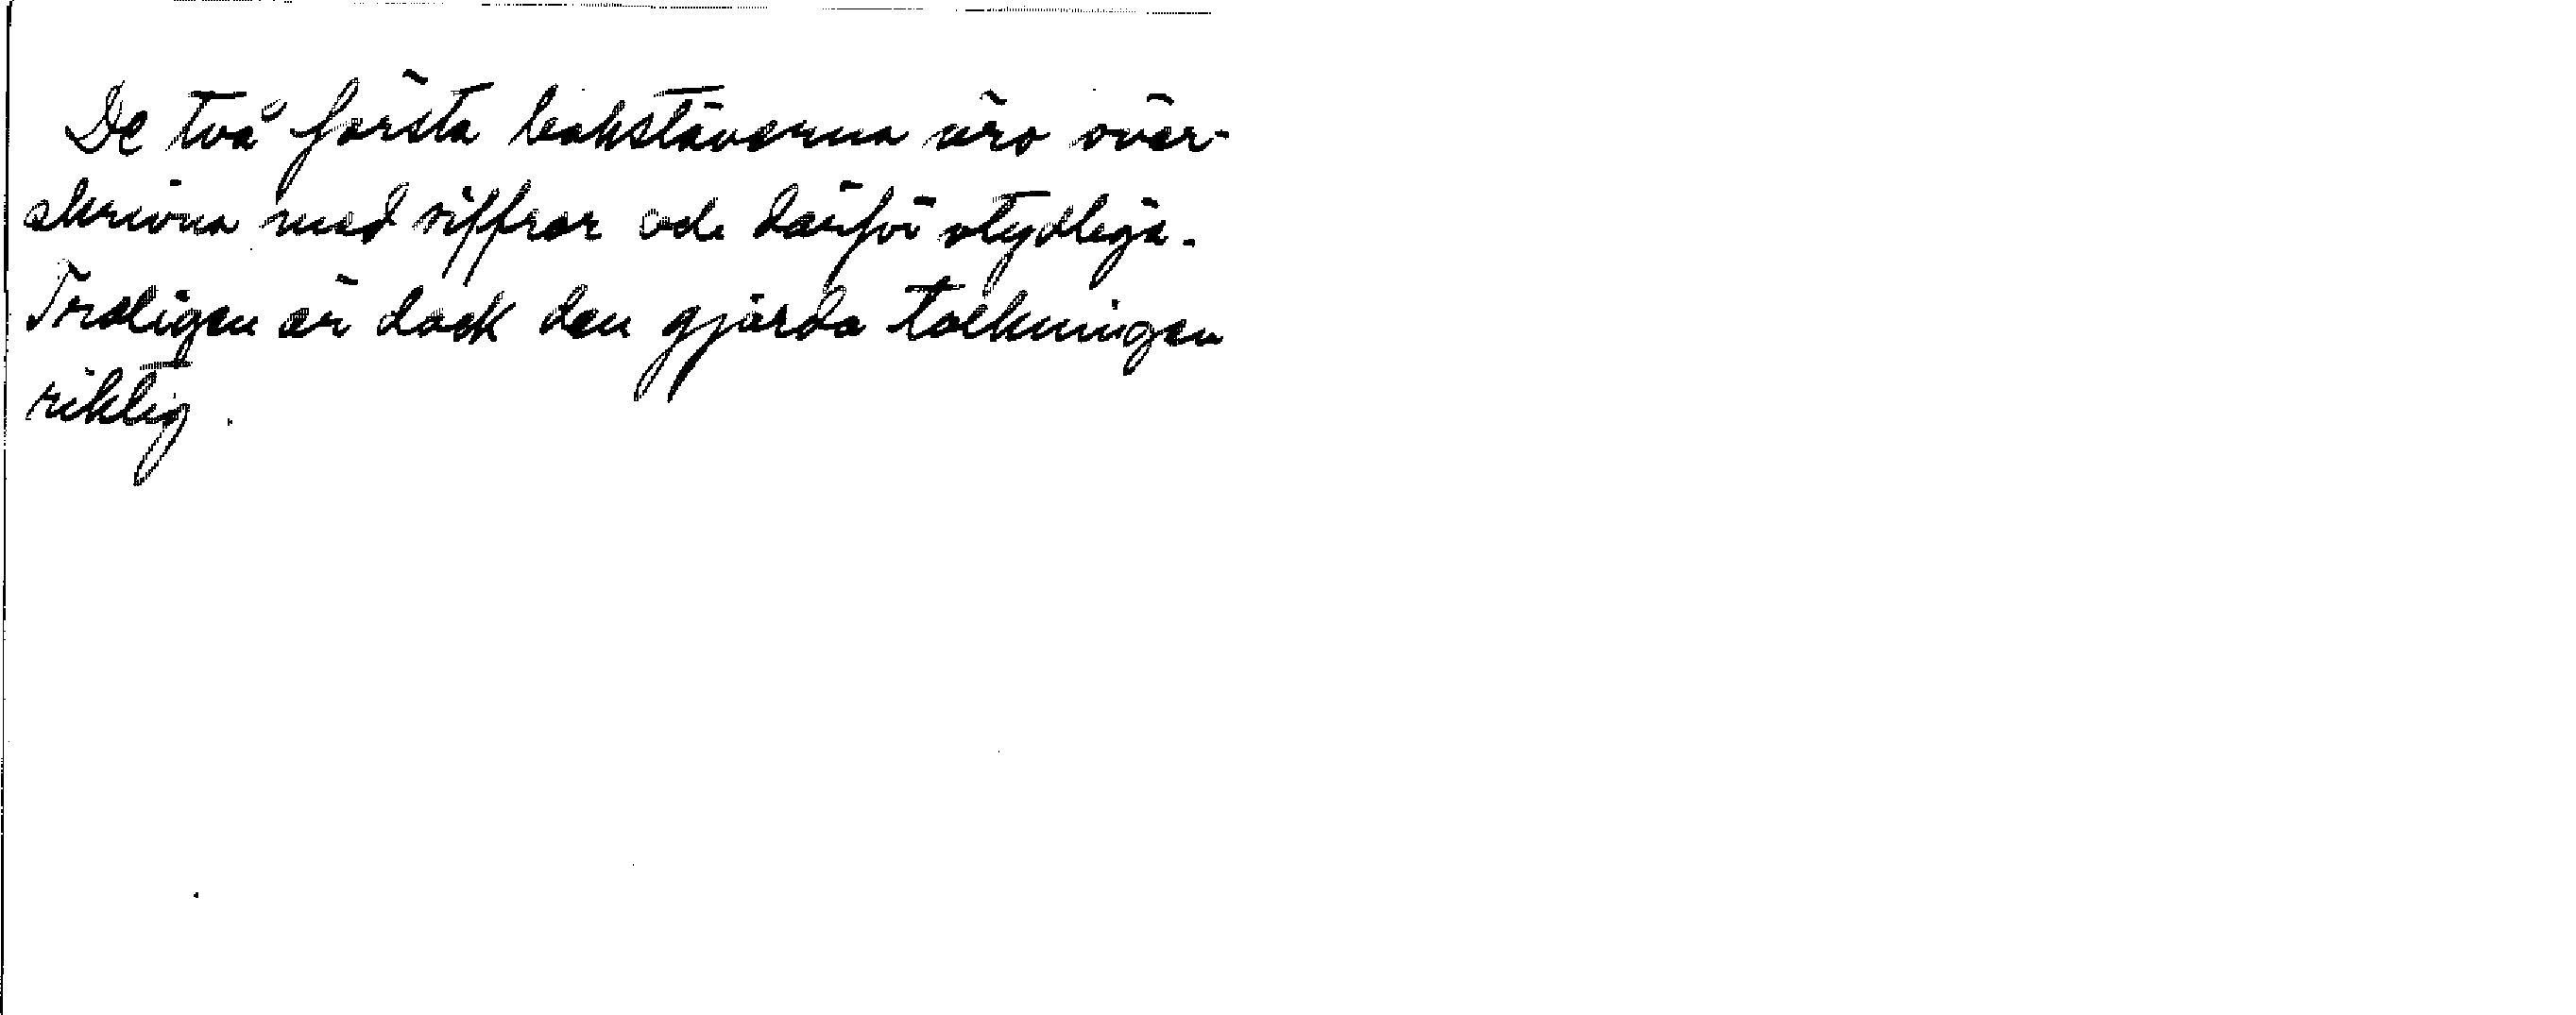 De två första bokstäverna äro över-
skrivna med siffror och därför otydliga.
Troligen är dock den gjorda tolkningen
riktig.